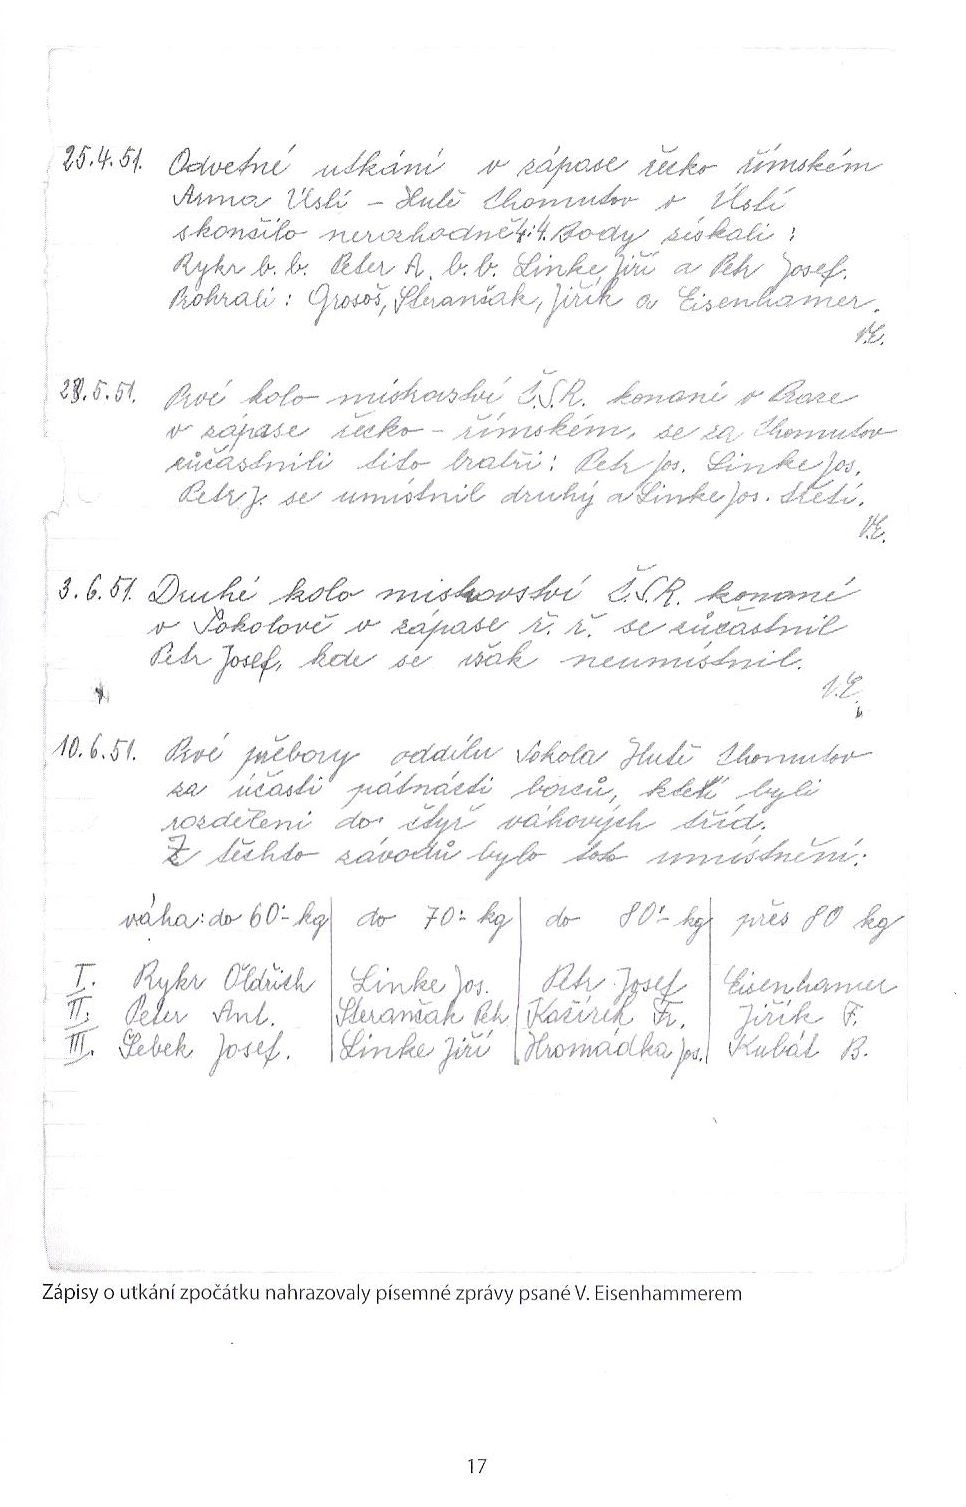 25.4.51. Odvetné utkání v zápase řecko římském
Arma Ústí – Hutě Chomutov v Ústí
skončilo nerozhodně 4:4. Body získali :
Rykr b. b. Peter A. b. b. Linke Jiří a Petr Josef.
Prohráli : Grosoš, Sterančak, Jiřík a Eisenhamer.
V.E.
28.5.51. Prvé kolo mistrovství Č.S.R. konané v Praze
v zápase řecko – římském, se za Chomutov
zůčastnili tito bratři : Petr Jos. Linke Jos.
Petr J. se umístnil druhý a Linke Jos. třetí.
V.E.
3.6.51. Druhé kolo mistrovství Č.S.R. konané
v Sokolově v zápase ř. ř. se zůčastnil
Petr Josef, kde se však neumístnil.
V.E.
10.6.51. Prvé přebory oddílu Sokola Hutě Chomutov
za účasti pátnácti borců, kteří byli
rozděleni do čtyř váhových tříd.
Z těchto závodů bylo toto umístnění :
váha : do 60·- kg do 70·- kg do 80·- kg přes 80 kg
I. Rykr Oldřich Linke Jos. Petr Josef Eisenhamer
II. Peter Ant. Sterančak Petr Kašírek Fr. Jiřík F.
III. Šebek Josef. Linke Jiří Hromadka Jos. Kubát B.
Zápisy o utkání zpočátku nahrazovaly písemné zprávy psané V. Eisenhammerem
17